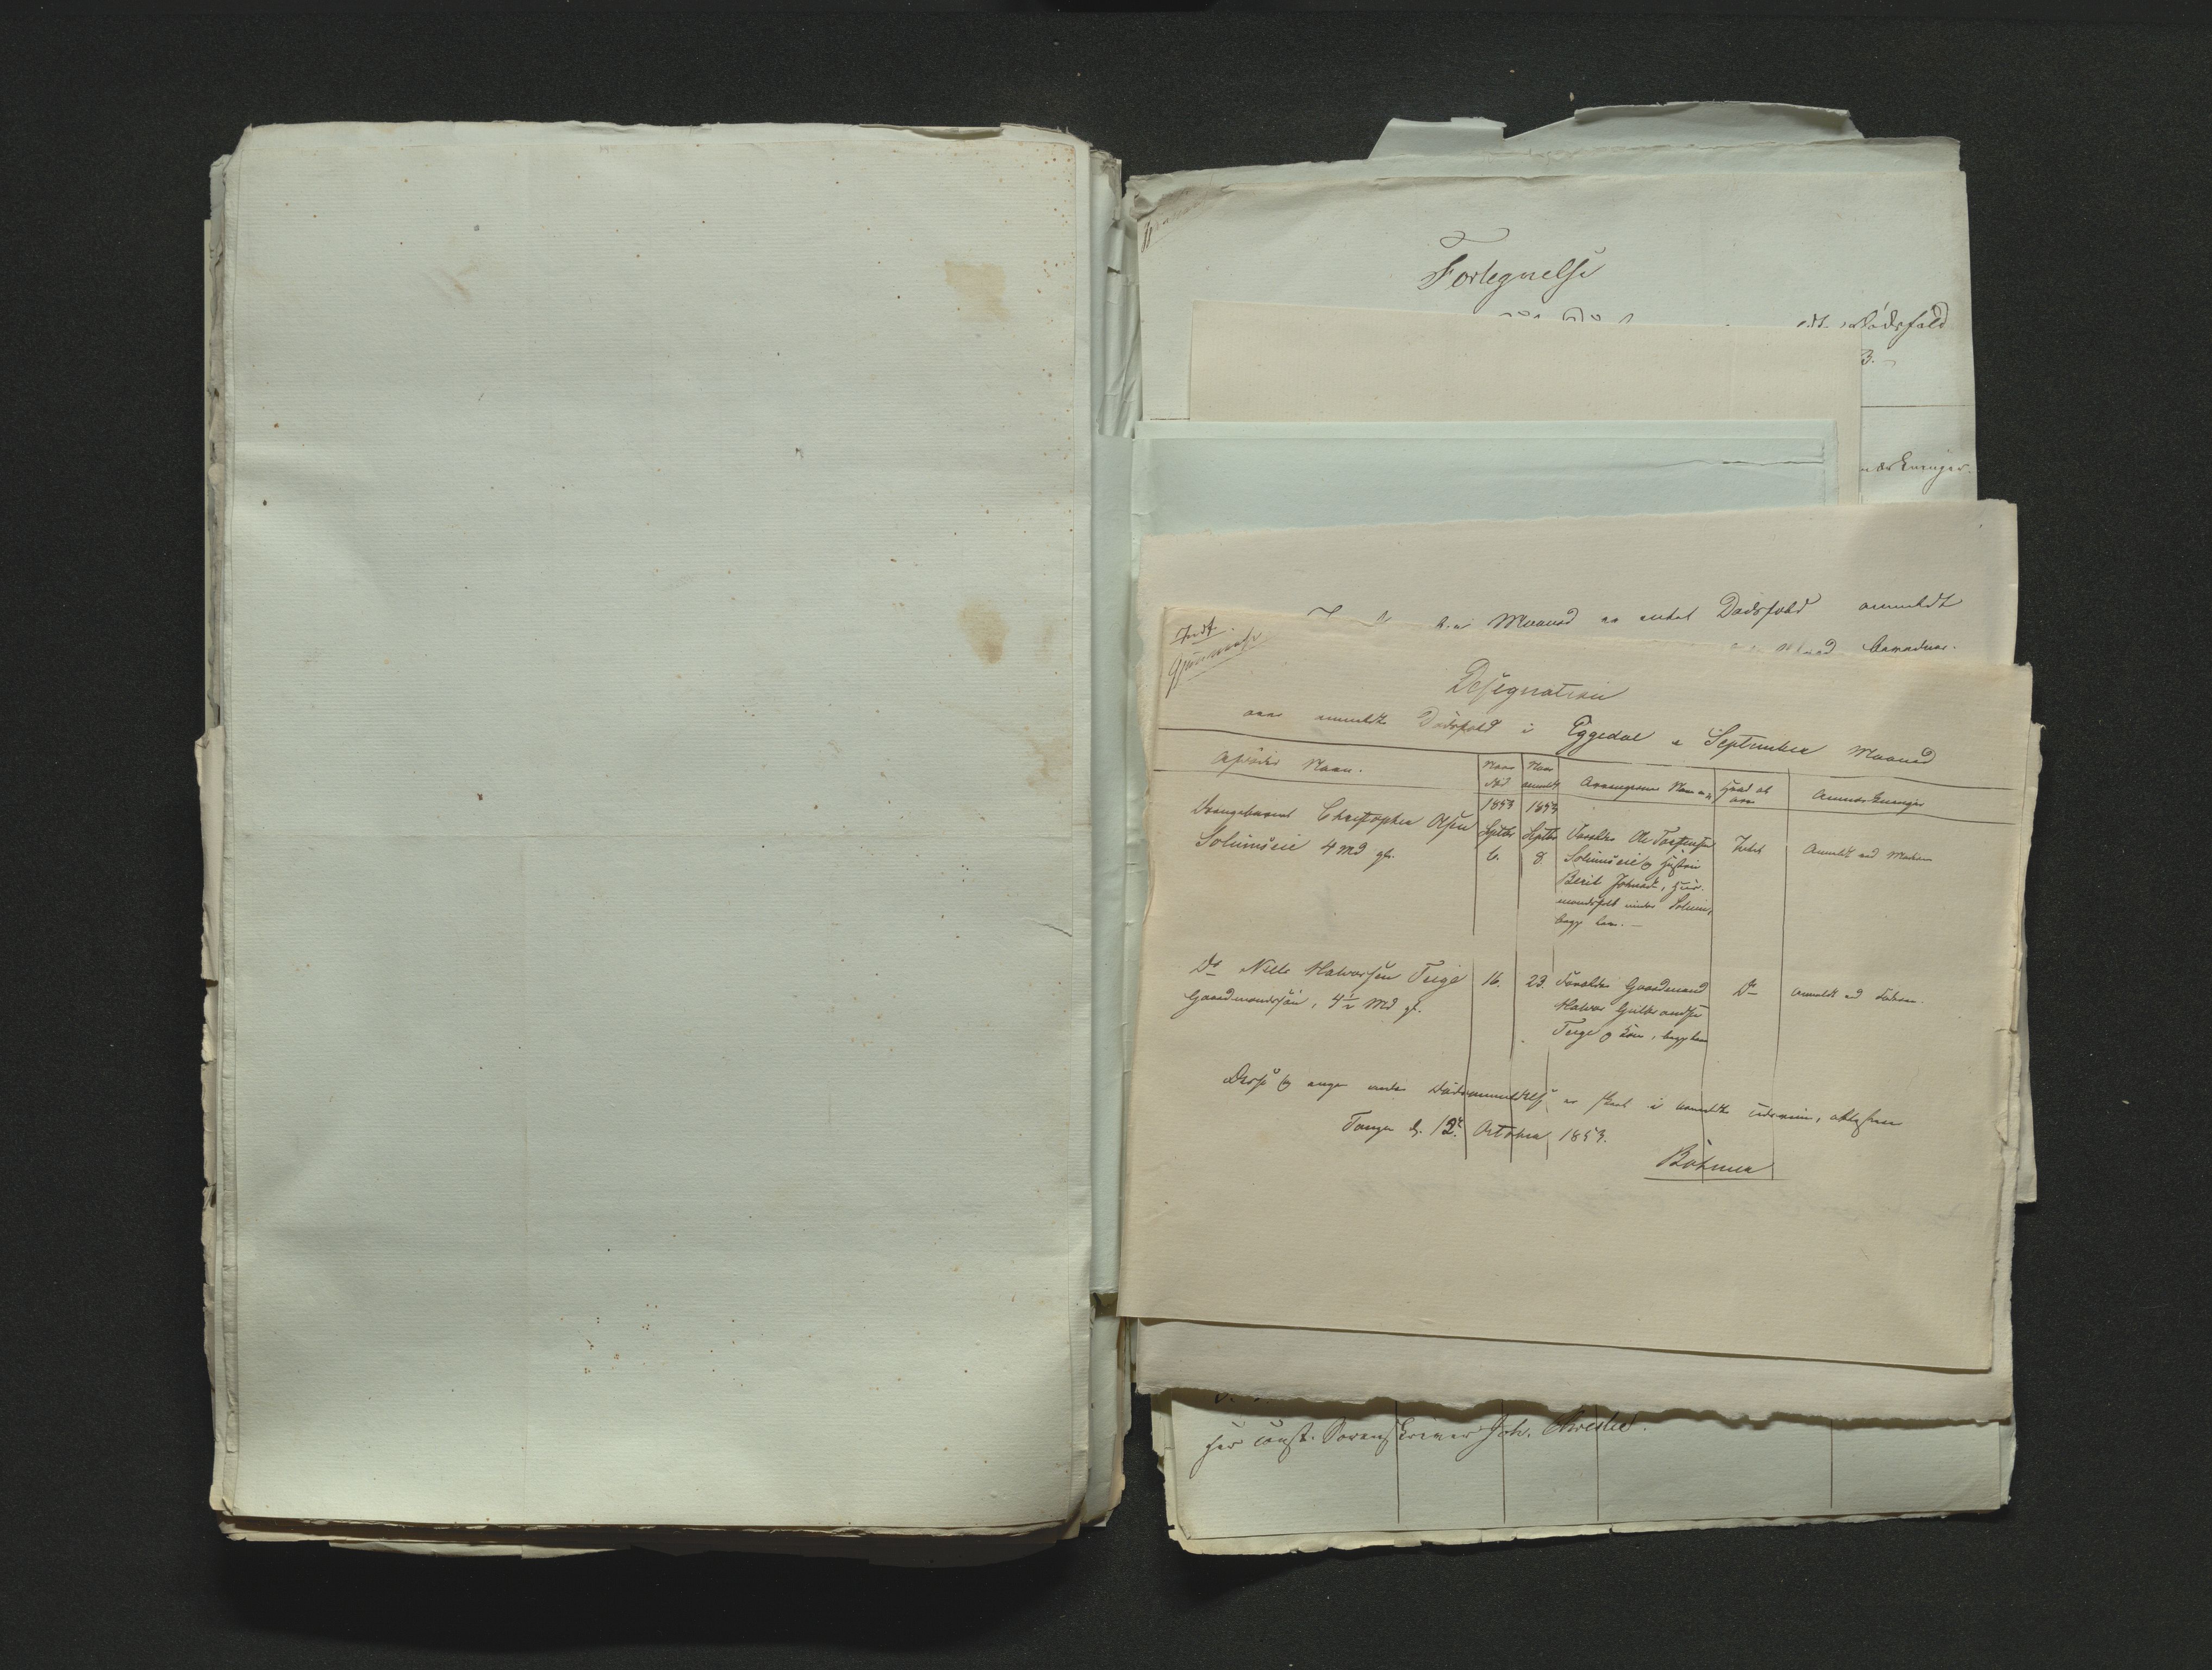 Fortegnelse
Dødsfald
3.
mærkninger.
Maaned er intet Dødsfald anmeldt
Indt.
Designation
over anmeldte Dødsfald i Eggedal i September Maaned
Afdødes Navn.
Naar død
Naar anmeldt
Arvingernes Navne
Hvad at arve
Anmærkninger
1853
1853
Drengebarnet Christopher Olsen
Solumseie 4 Md gl.
Septbr
6.
Septbr
8.
Forældre Ole Torstensen
Solumseie og Hustru
Berit Johnsdr, Huus-
mandsfolk under Solum,
begge leve.
Intet
Anmeldt ved Moderen
Do Nills Halvorsen Teige
Gaardmandssøn, 4½ Md gl.
16.
23.
Forældre Gaardmand
Halvor Gulbrandsen
Teige og Kone, begge leve
Do
Anmeldt ved Faderen.
Disse og ingen andre Dødsanmeldelser er skeet i anmeldte
Tangen d. 12t October 1853.
Bøhmer
hos const. Sorenskriver Joh.